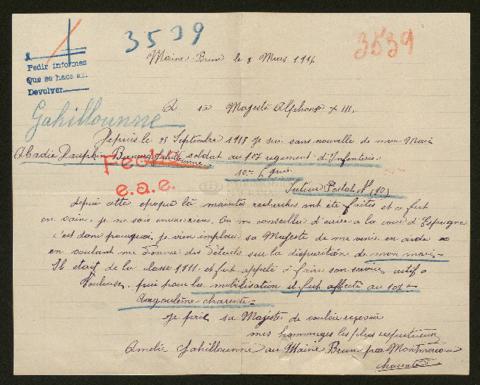 3539
3539
Maine Brun le 8 Mars 1916
1
Pedir informes
Que se hace en
Devolver
Gahillounne
A sa Majesté Alphonse XIII.
Depuis le 25 Septembre 1915 je suis sans nouvelle de mon Mari
Abadie Dauphin soldat au 107 regiment d'Infanterie
Fecha
10e Cie
e.a.e.
Secteur Postal N
depuis cette epoque la maintes recherches ont été faites et ce fut
en vain, je ne sais on me conseille d'ecrire a la cour d'Espagne
c'est donc pourquoi je viens implorer sa Majesté de me venir en aide
en voulant me donner des details sur la disparition de mon mari
Il était de la classe 1911 et fut appelé a faire son service actif a
Toulouse, puis pour la mobilisation il fut affecté au 107e
Angoulême charente
Je prie sa Majesté de vouloir recevoir
mes hommages les plus respectueux
Amelie Gahillounne au Maine Brun par Montmoreau
charente